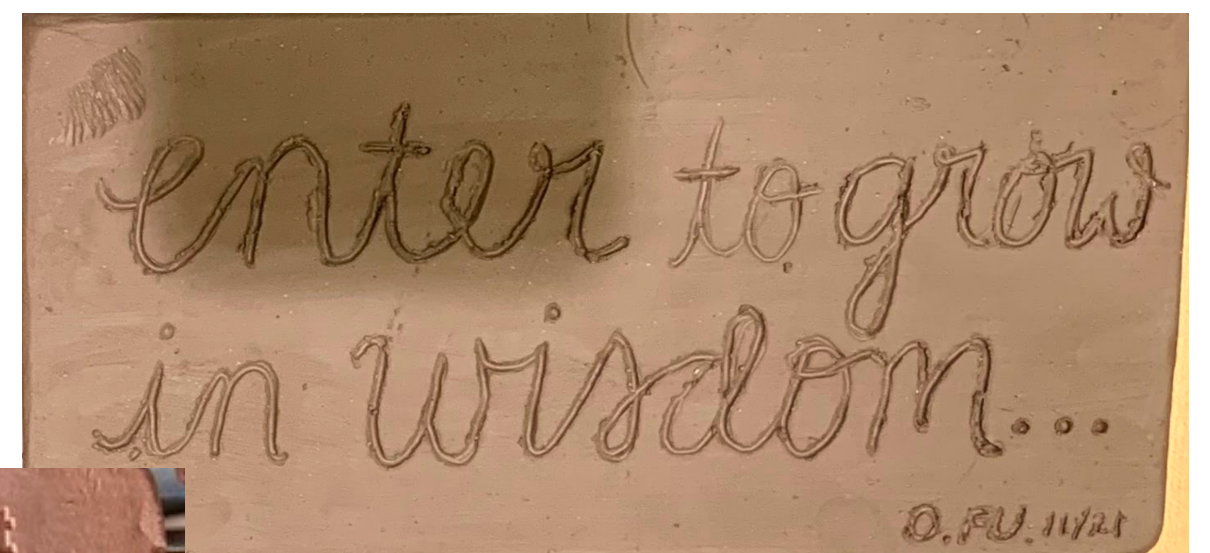 enter to grow
in wisdom...
O.FU. 11/21